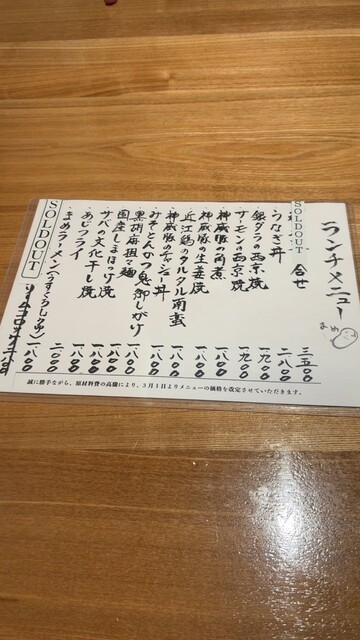 ランチメニュー
まめ
SOLDOUT 合せ 三五〇〇
うなぎ丼 二八〇〇
銀ダラの西京焼 一九〇〇
サーモンの西京焼 一九〇〇
神威豚の角煮 一八〇〇
神威豚の生姜焼 一八〇〇
近江鶏のタルタル南蛮 一八〇〇
神威豚のチャーシュー丼 一八〇〇
みそとんかつ鬼卸しがけ 一八〇〇
黒胡麻担々麺 一八〇〇
国産しまほっけ焼
サバの文化干し焼 一八〇〇
あじフライ 一八〇〇
まめラーメン(うすくちしょうゆ) 一八〇〇
SOLDOUT
誠に勝手ながら、原材料費の高騰により、3月1日よりメニューの価格を改定させていただきます。